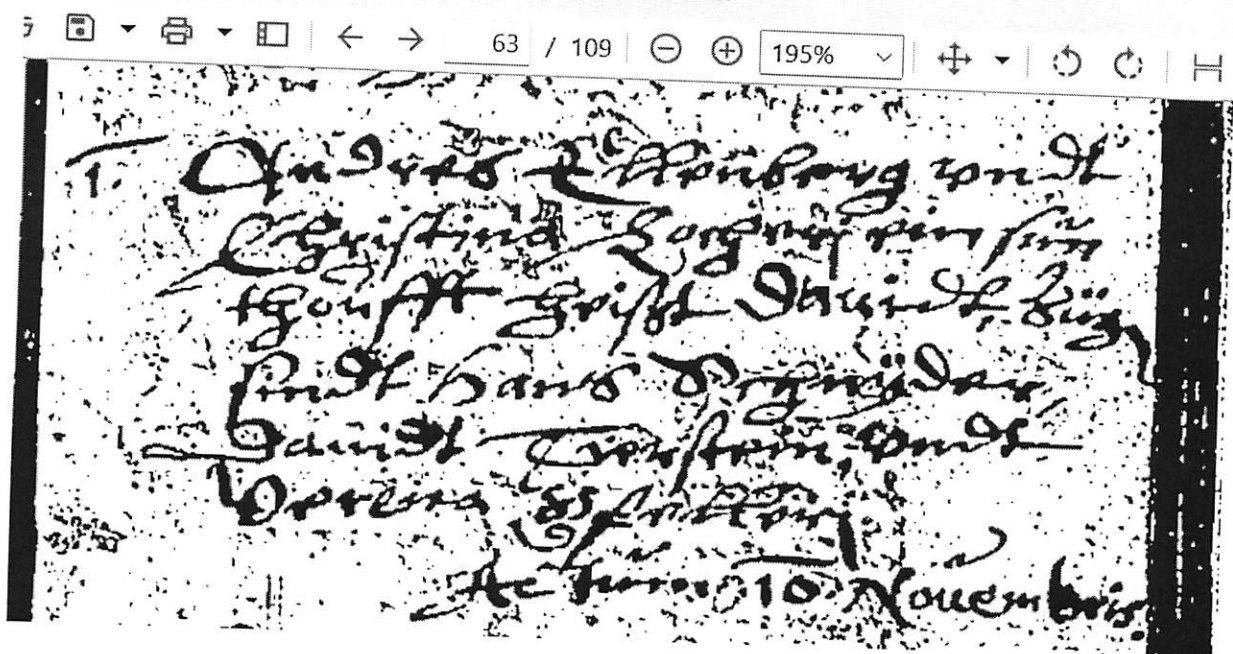 63 / 109 195%
1. Andres Ellenberg vndt
Christina Zocher ein sun
thoufft heisst Dauidt, Züg
sindt Hans Schnÿder,
Dauidt Gerstein, vndt
Verena
Actum 10 Nouembris.